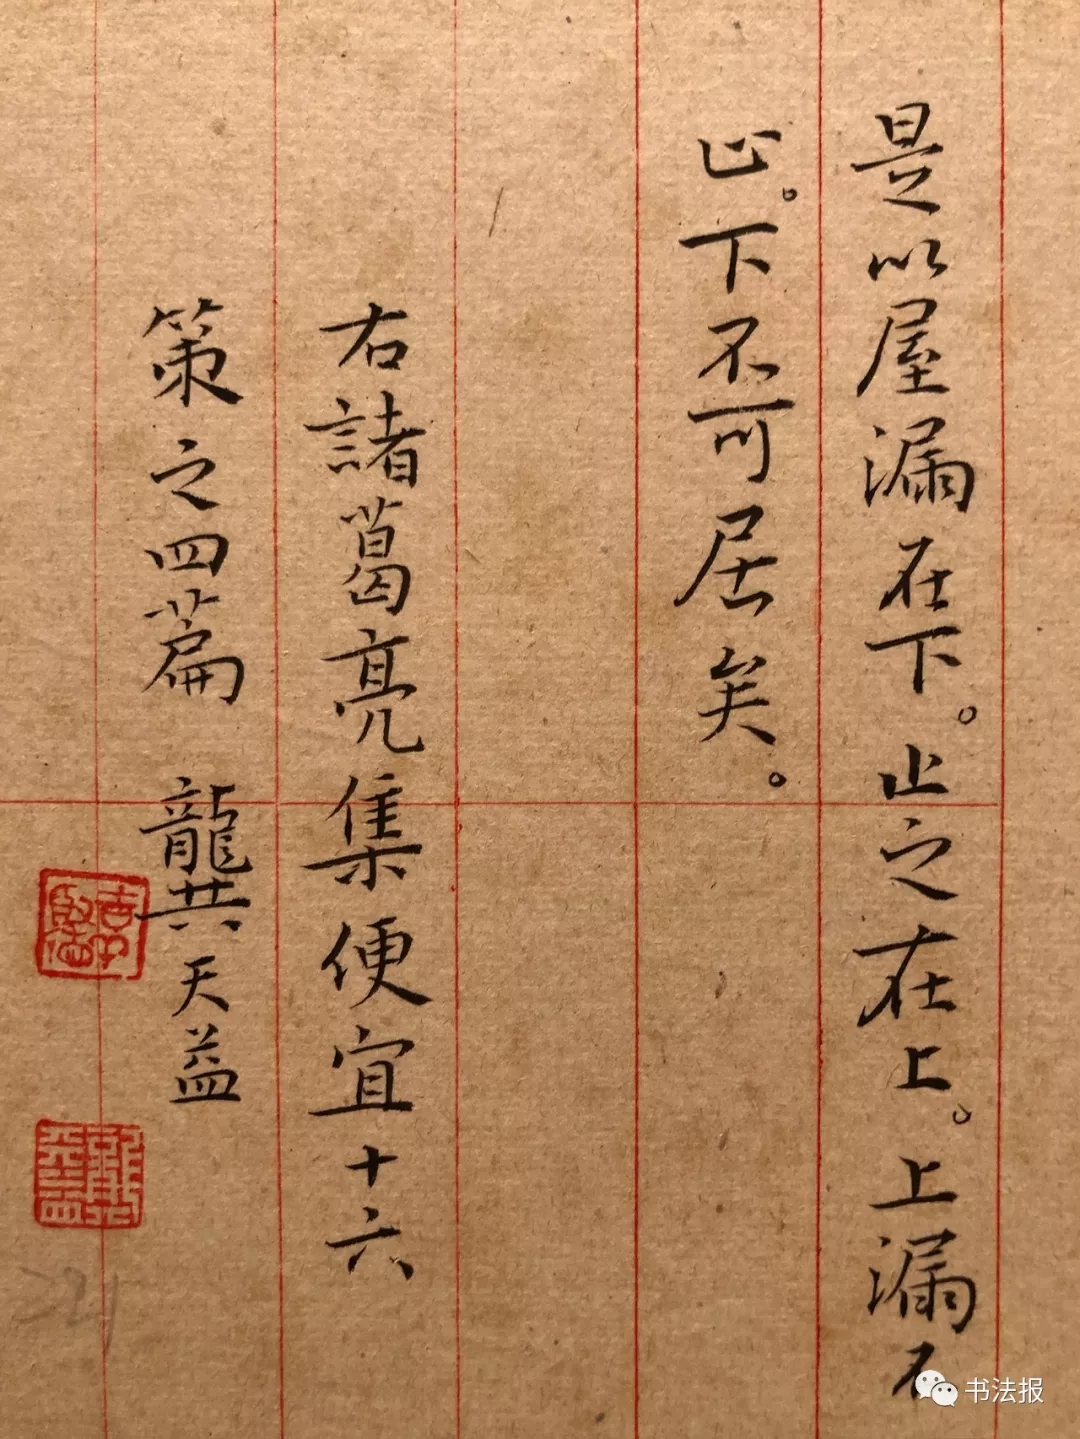 是以屋漏在下。止之在上。上漏不
止。下不可居矣。
右諸葛亮集便宜十六
策之四篇 龔天益
书法报